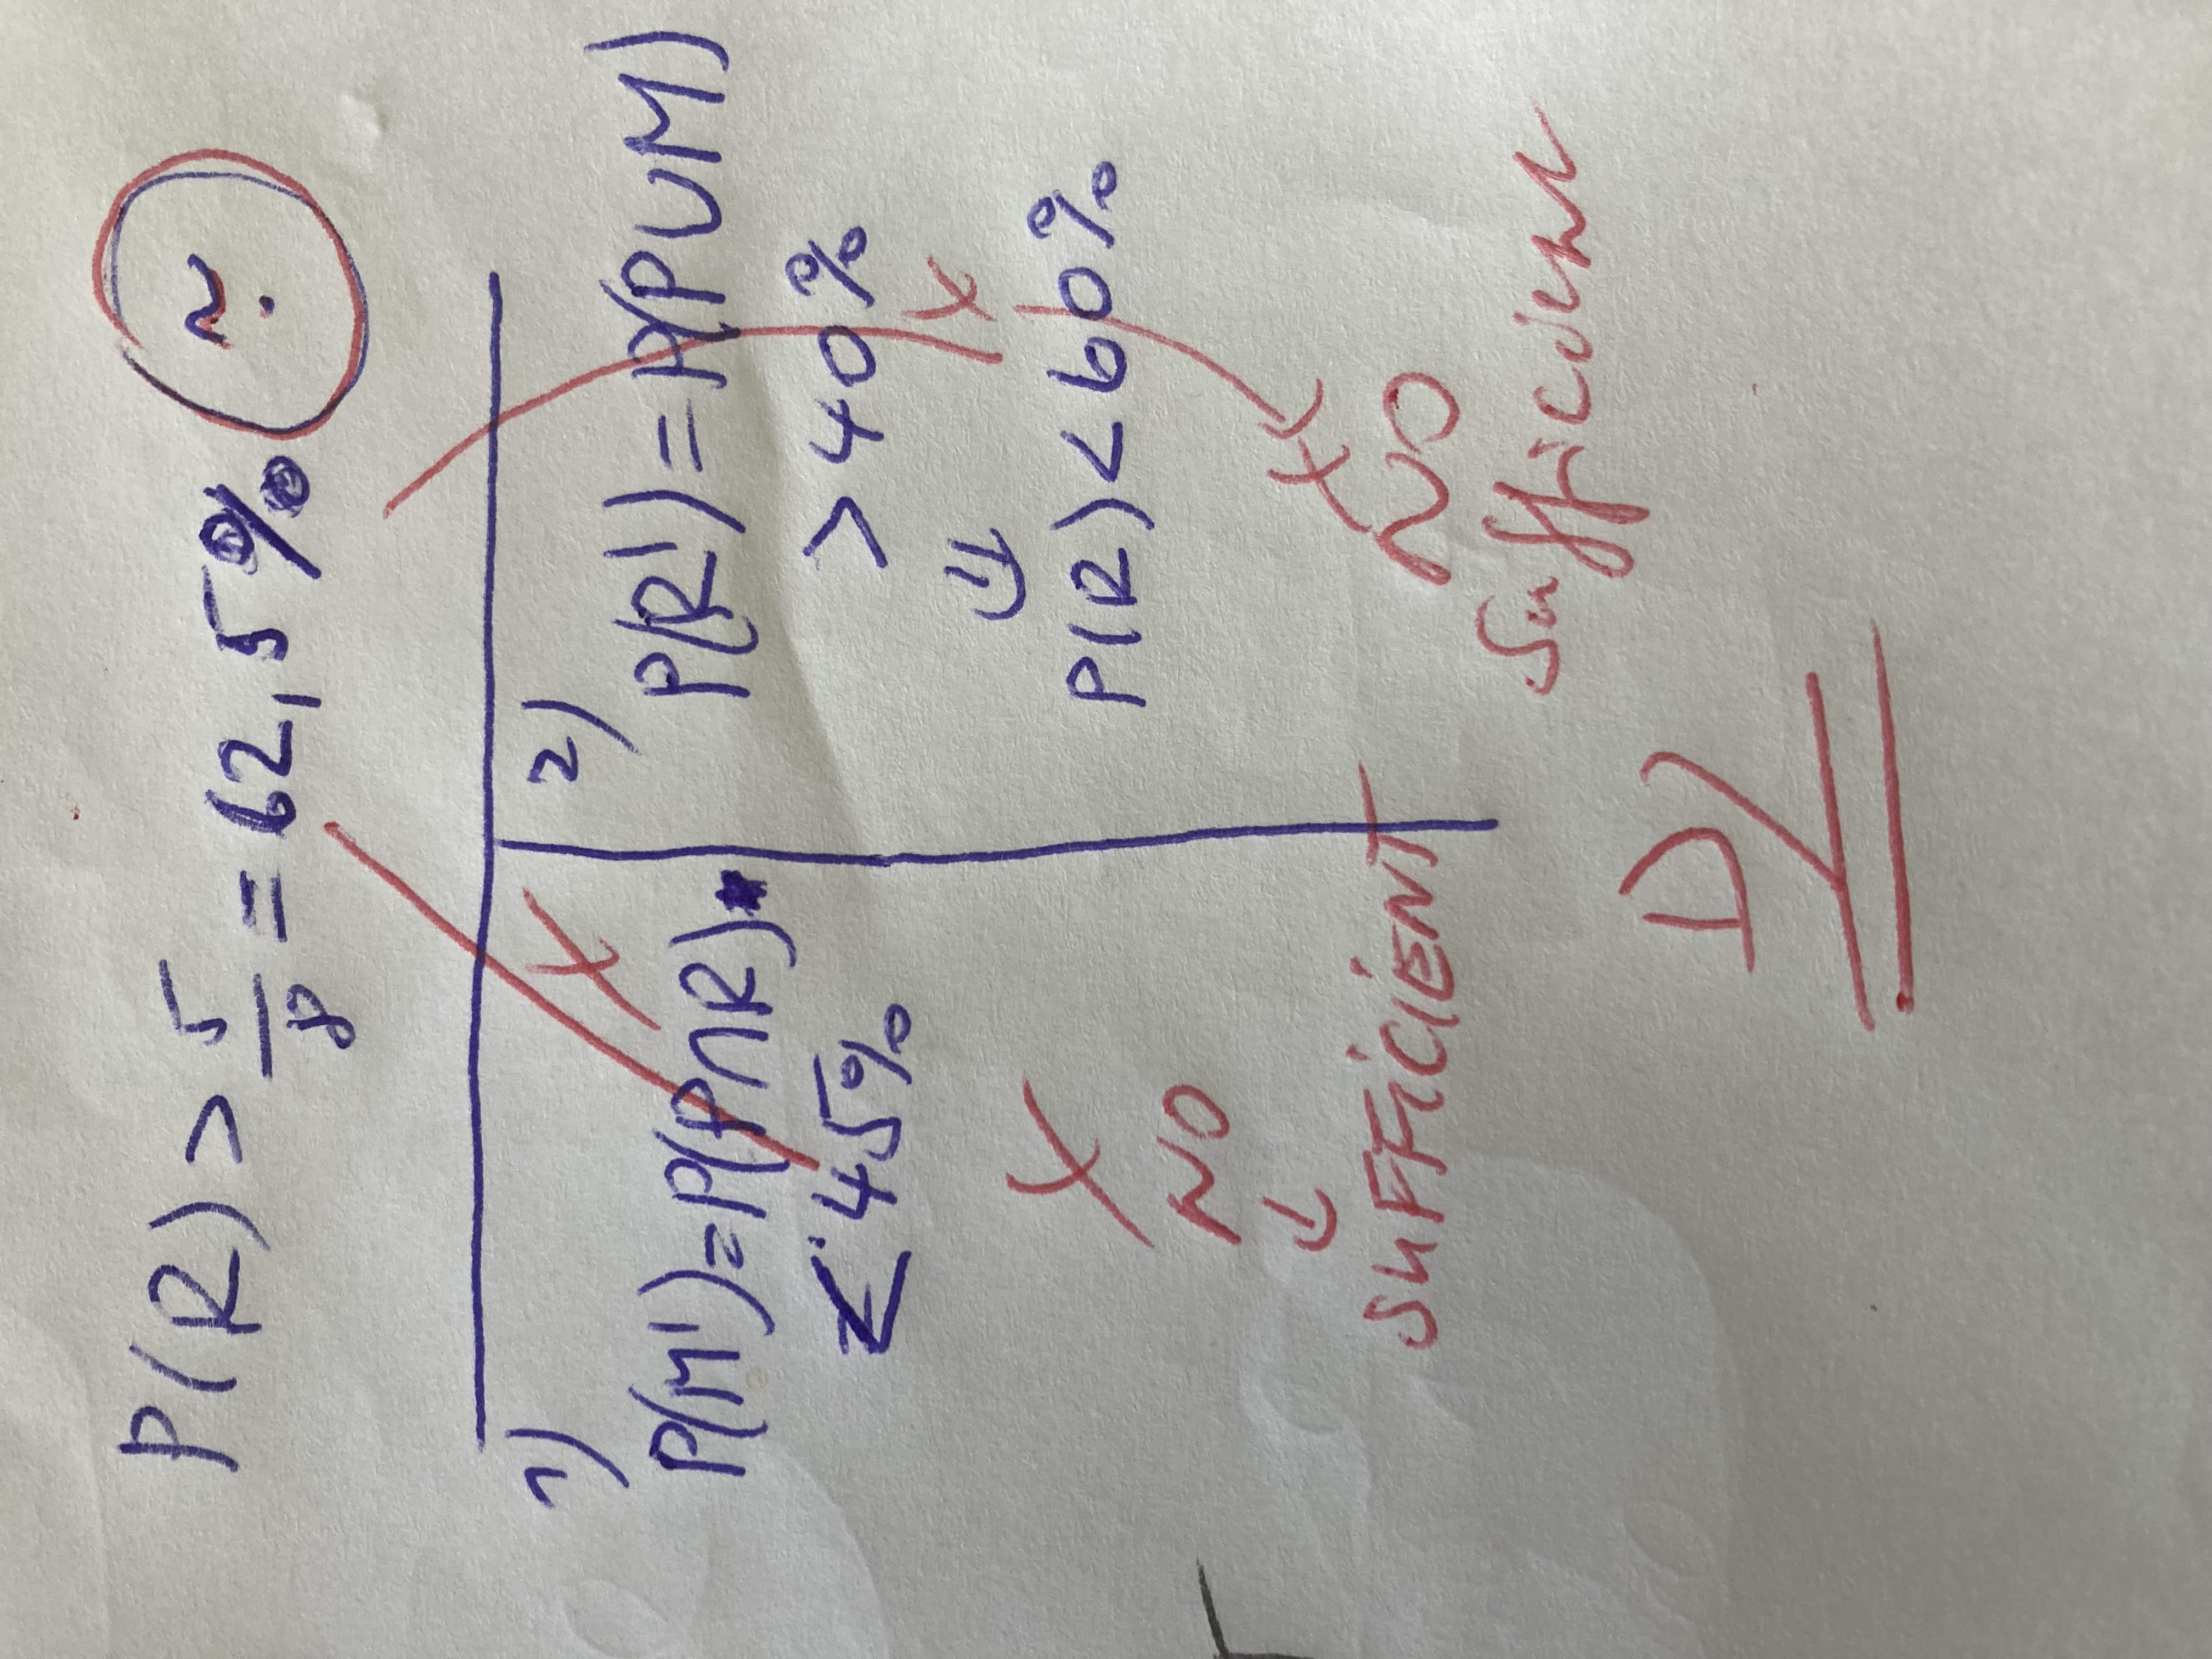 P(R) > 5/8 = 62,5% ?.
1)
P(M') = P(P∩R)
≤ 45%
X
X
NO
⇓
SUFFICIENT
2)
P(R') = P(P∪M)
> 40%
X
⇓
P(R) < 60%
X
NO
Sufficient
D